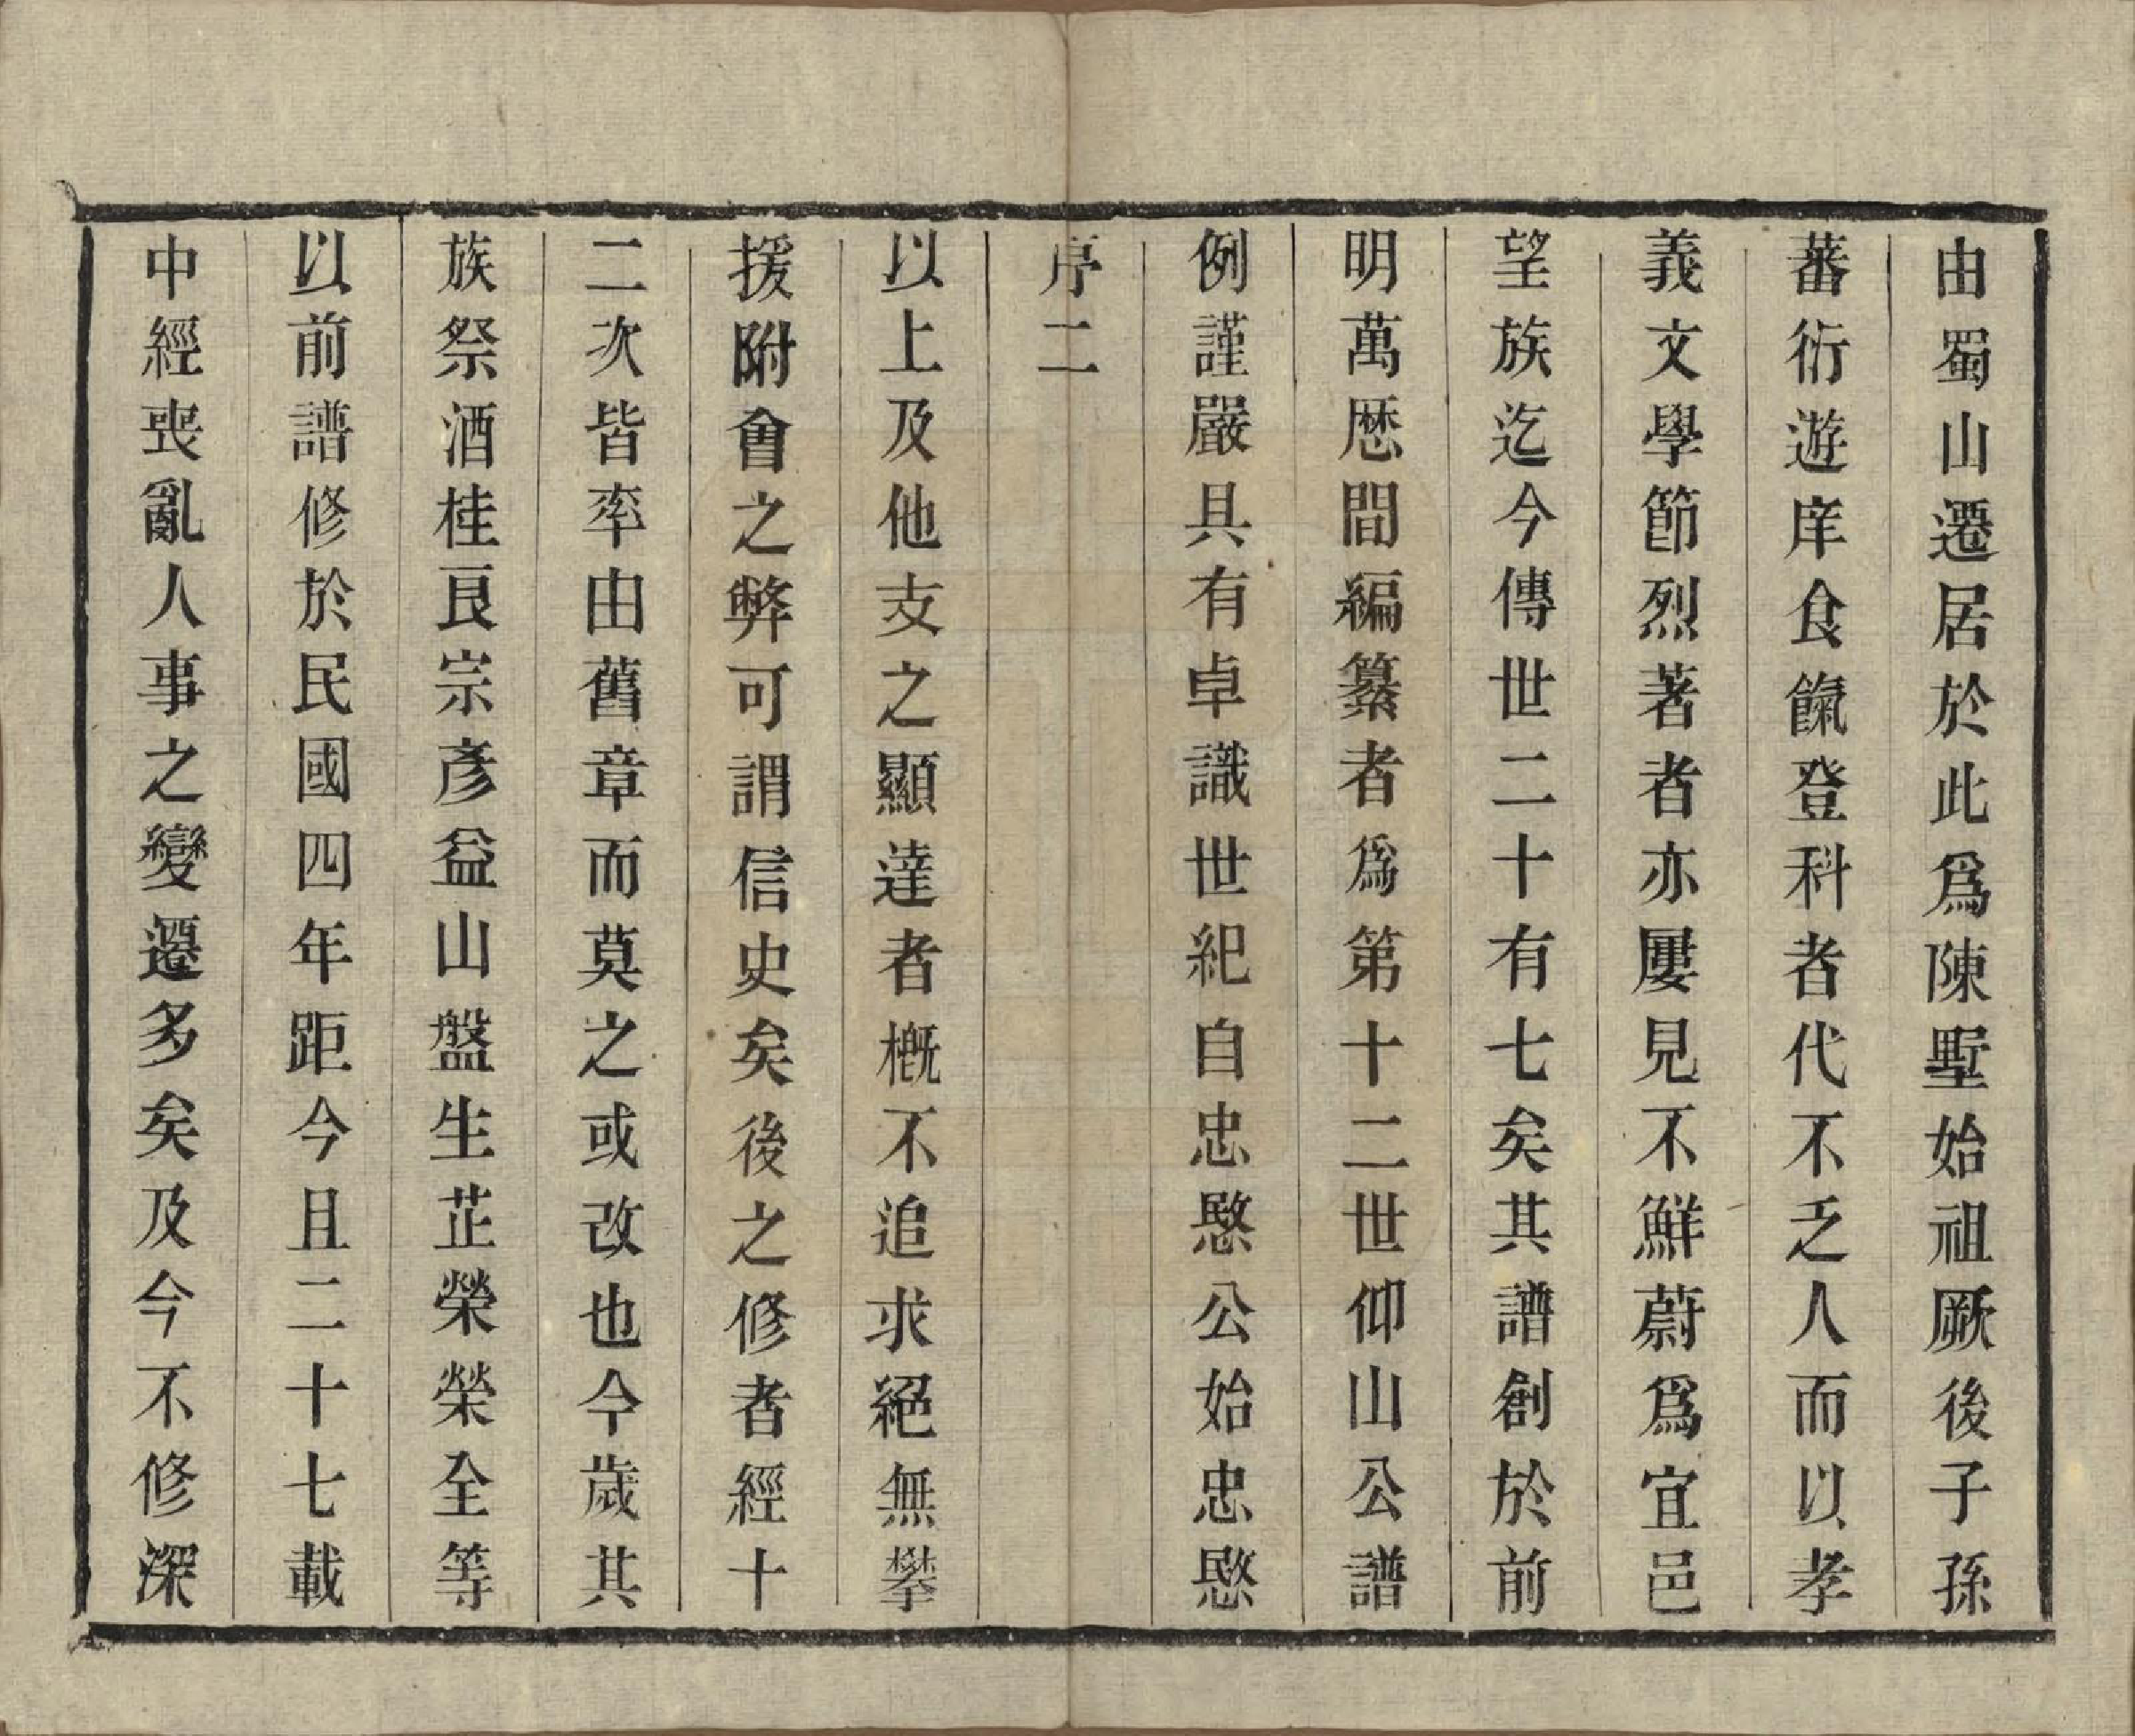 由蜀山遷居於此爲陳墅始祖厥後子孫
蕃衍遊庠食餼登科者代不乏人而以孝
義文學節烈著者亦屢見不鮮蔚爲宜邑
望族迄今傳世二十有七矣其譜創於前
明萬厯間編纂者爲第十二世仰山公譜
例謹嚴具有卓識世紀自忠愍公始忠愍
序二
以上及他支之顯達者槪不追求絕無攀
援附會之弊可謂信史矣後之修者經十
二次皆率由舊章而莫之或改也今歲其
族祭酒桂良宗彥益山盤生芷榮榮全等
以前譜修於民國四年距今且二十七載
中經喪亂人事之變遷多矣及今不修深